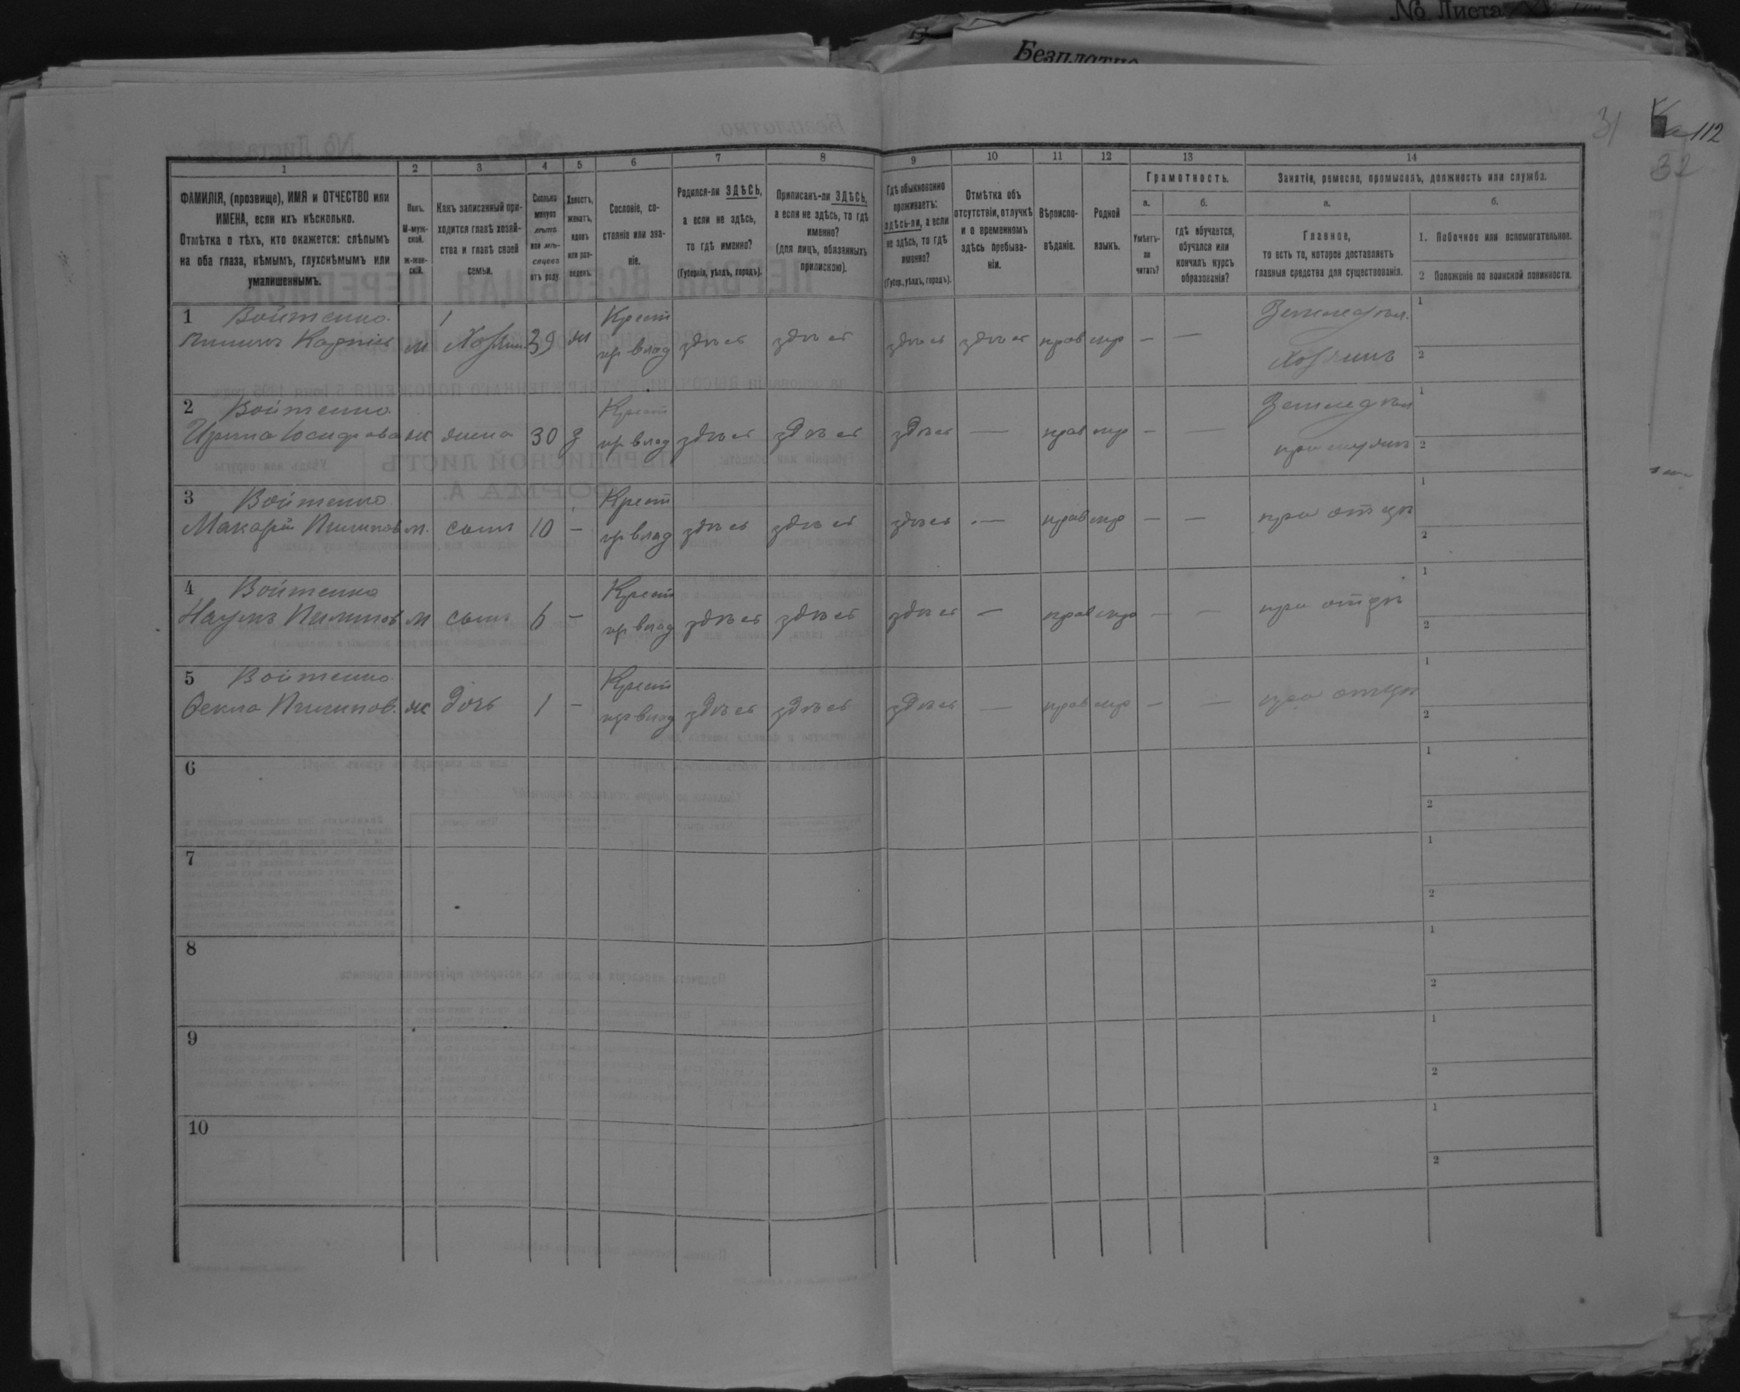 No. Листа
Безплатно
31
112
32
1
2
3
4
5
6
7
8
9
10
11
12
13
14
ФАМИЛІЯ, (прозвище), ИМЯ и ОТЧЕСТВО или
ИМЕНА, если ихъ нѣсколько.
Отмѣтка о тѣхъ, кто окажется: слѣпымъ
на оба глаза, нѣмымъ, глухонѣмымъ или
умалишеннымъ.
Полъ.
М-муж-
ской.
ж-жен-
скій.
Какъ записанный при-
ходится главѣ хозяй-
ства и главѣ своей
семьи.
Сколько
минуло
лѣтъ
или мѣ-
сяцевъ
отъ роду.
Холостъ,
женатъ,
вдовъ
или раз-
веденъ.
Сословіе, со-
стояніе или зва-
ніе.
Родился-ли ЗДѢСЬ,
а если не здѣсь,
то гдѣ именно?
(Губернія, уѣздъ, городъ).
Приписанъ-ли ЗДѢСЬ,
а если не здѣсь, то гдѣ
именно?
(для лицъ, обязанныхъ
припискою).
Гдѣ обыкновенно
проживаетъ:
здѣсь-ли, а если
не здѣсь, то гдѣ
именно?
(Губер., уѣздъ, городъ).
Отмѣтка объ
отсутствіи, отлучкѣ
и о временномъ
здѣсь пребыва-
ніи.
Вѣроиспо-
вѣданіе.
Родной
языкъ.
Грамотность.
а.
Умѣетъ-
ли
читать?
б.
гдѣ обучается,
обучался или
кончилъ курсъ
образованія?
Занятія, ремесло, промыселъ, должность или служба.
а.
Главное,
то есть то, которое доставляетъ
главныя средства для существованія.
б.
1. Побочное или вспомогательное.
2 Положеніе по воинской повинности.
1 Войтенко Крест Земледѣл. 1
Пилипъ м Хозяин 39 ж здѣсь здѣсь здѣсь здѣсь прав мр — — Хозяинъ 2
2 Войтенко Крест Земледѣл 1
Ирина Іосифова ж жена 30 з здѣсь здѣсь здѣсь — прав мр — — при мужѣ 2
3 Войтенко Крест 1
Макарій Пилипов м. сынъ 10 — здѣсь здѣсь здѣсь — прав мр — — при отцѣ 2
4 Войтенко Крест 1
Наумъ Пилипов м сынъ 6 — здѣсь здѣсь здѣсь — прав мр — — при отцѣ 2
5 Войтенко Крест 1
Фекла Пилипов. ж дочь 1 — здѣсь здѣсь здѣсь — прав мр — — при отцѣ 2
6 1
2
7 1
2
8 1
2
9 1
2
10 1
2